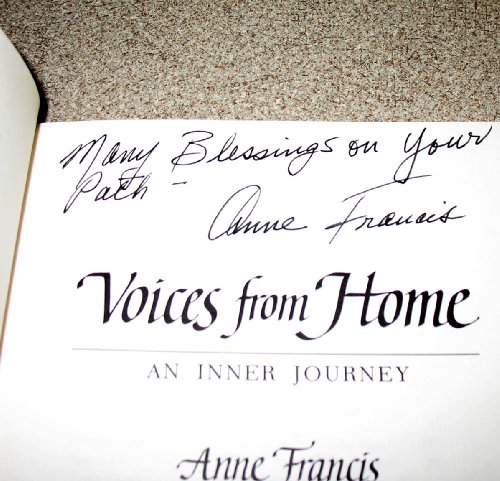 Many Blessings on Your
Path -
Anne Francis
Voices from Home
AN INNER JOURNEY
Anne Francis